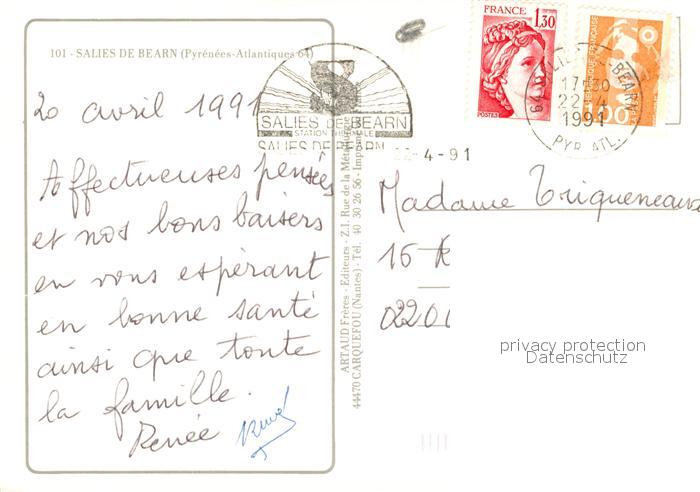 101 - SALIES DE BEARN (Pyrénées-Atlantiques 64)
20 avril 1991
Affectueuses pensées
et nos bons baisers
en vous espérant
en bonne santé
ainsi que toute
la famille.
Renée
SALIES DE BEARN
STATION THERMALE
SALIES DE BEARN 22-4-91
ARTAUD Frères - Editeurs - Z.I. Rue de la Métallurgie
44470 CARQUEFOU (Nantes) - Tél. 40 30 26 56 - Imprimé
FRANCE
1,30
POSTES
REPUBLIQUE FRANÇAISE
17H30
22-4
1991
PYR. ATL.
Madame Triqueneaux
16 R
0220
privacy protection
Datenschutz